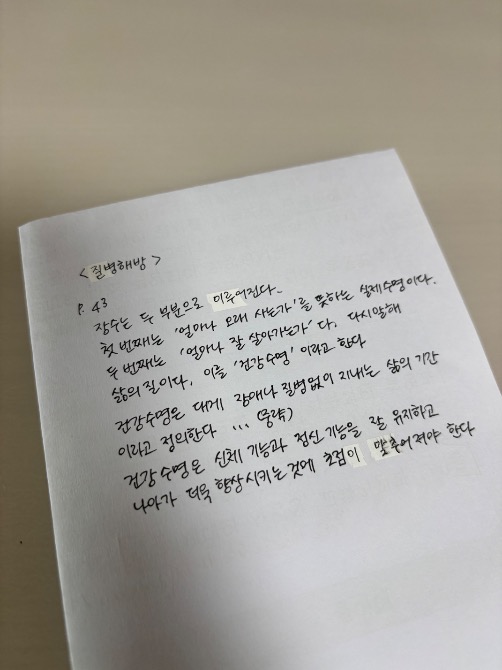 <질병해방>
P. 43
장수는 두 부분으로 이루어진다.
첫 번째는 '얼마나 오래 사는가'를 뜻하는 실제수명이다.
두 번째는 '얼마나 잘 살아가는가'다, 다시말해
삶의 질이다, 이를 '건강수명' 이라고 한다
건강수명은 대게 장애나 질병없이 지내는 삶의 기간
이라고 정의한다 ... 중략)
건강 수명은 신체 기능과 정신 기능을 잘 유지하고
나아가 더욱 향상시키는 것에 초점이 맞추어져야 한다